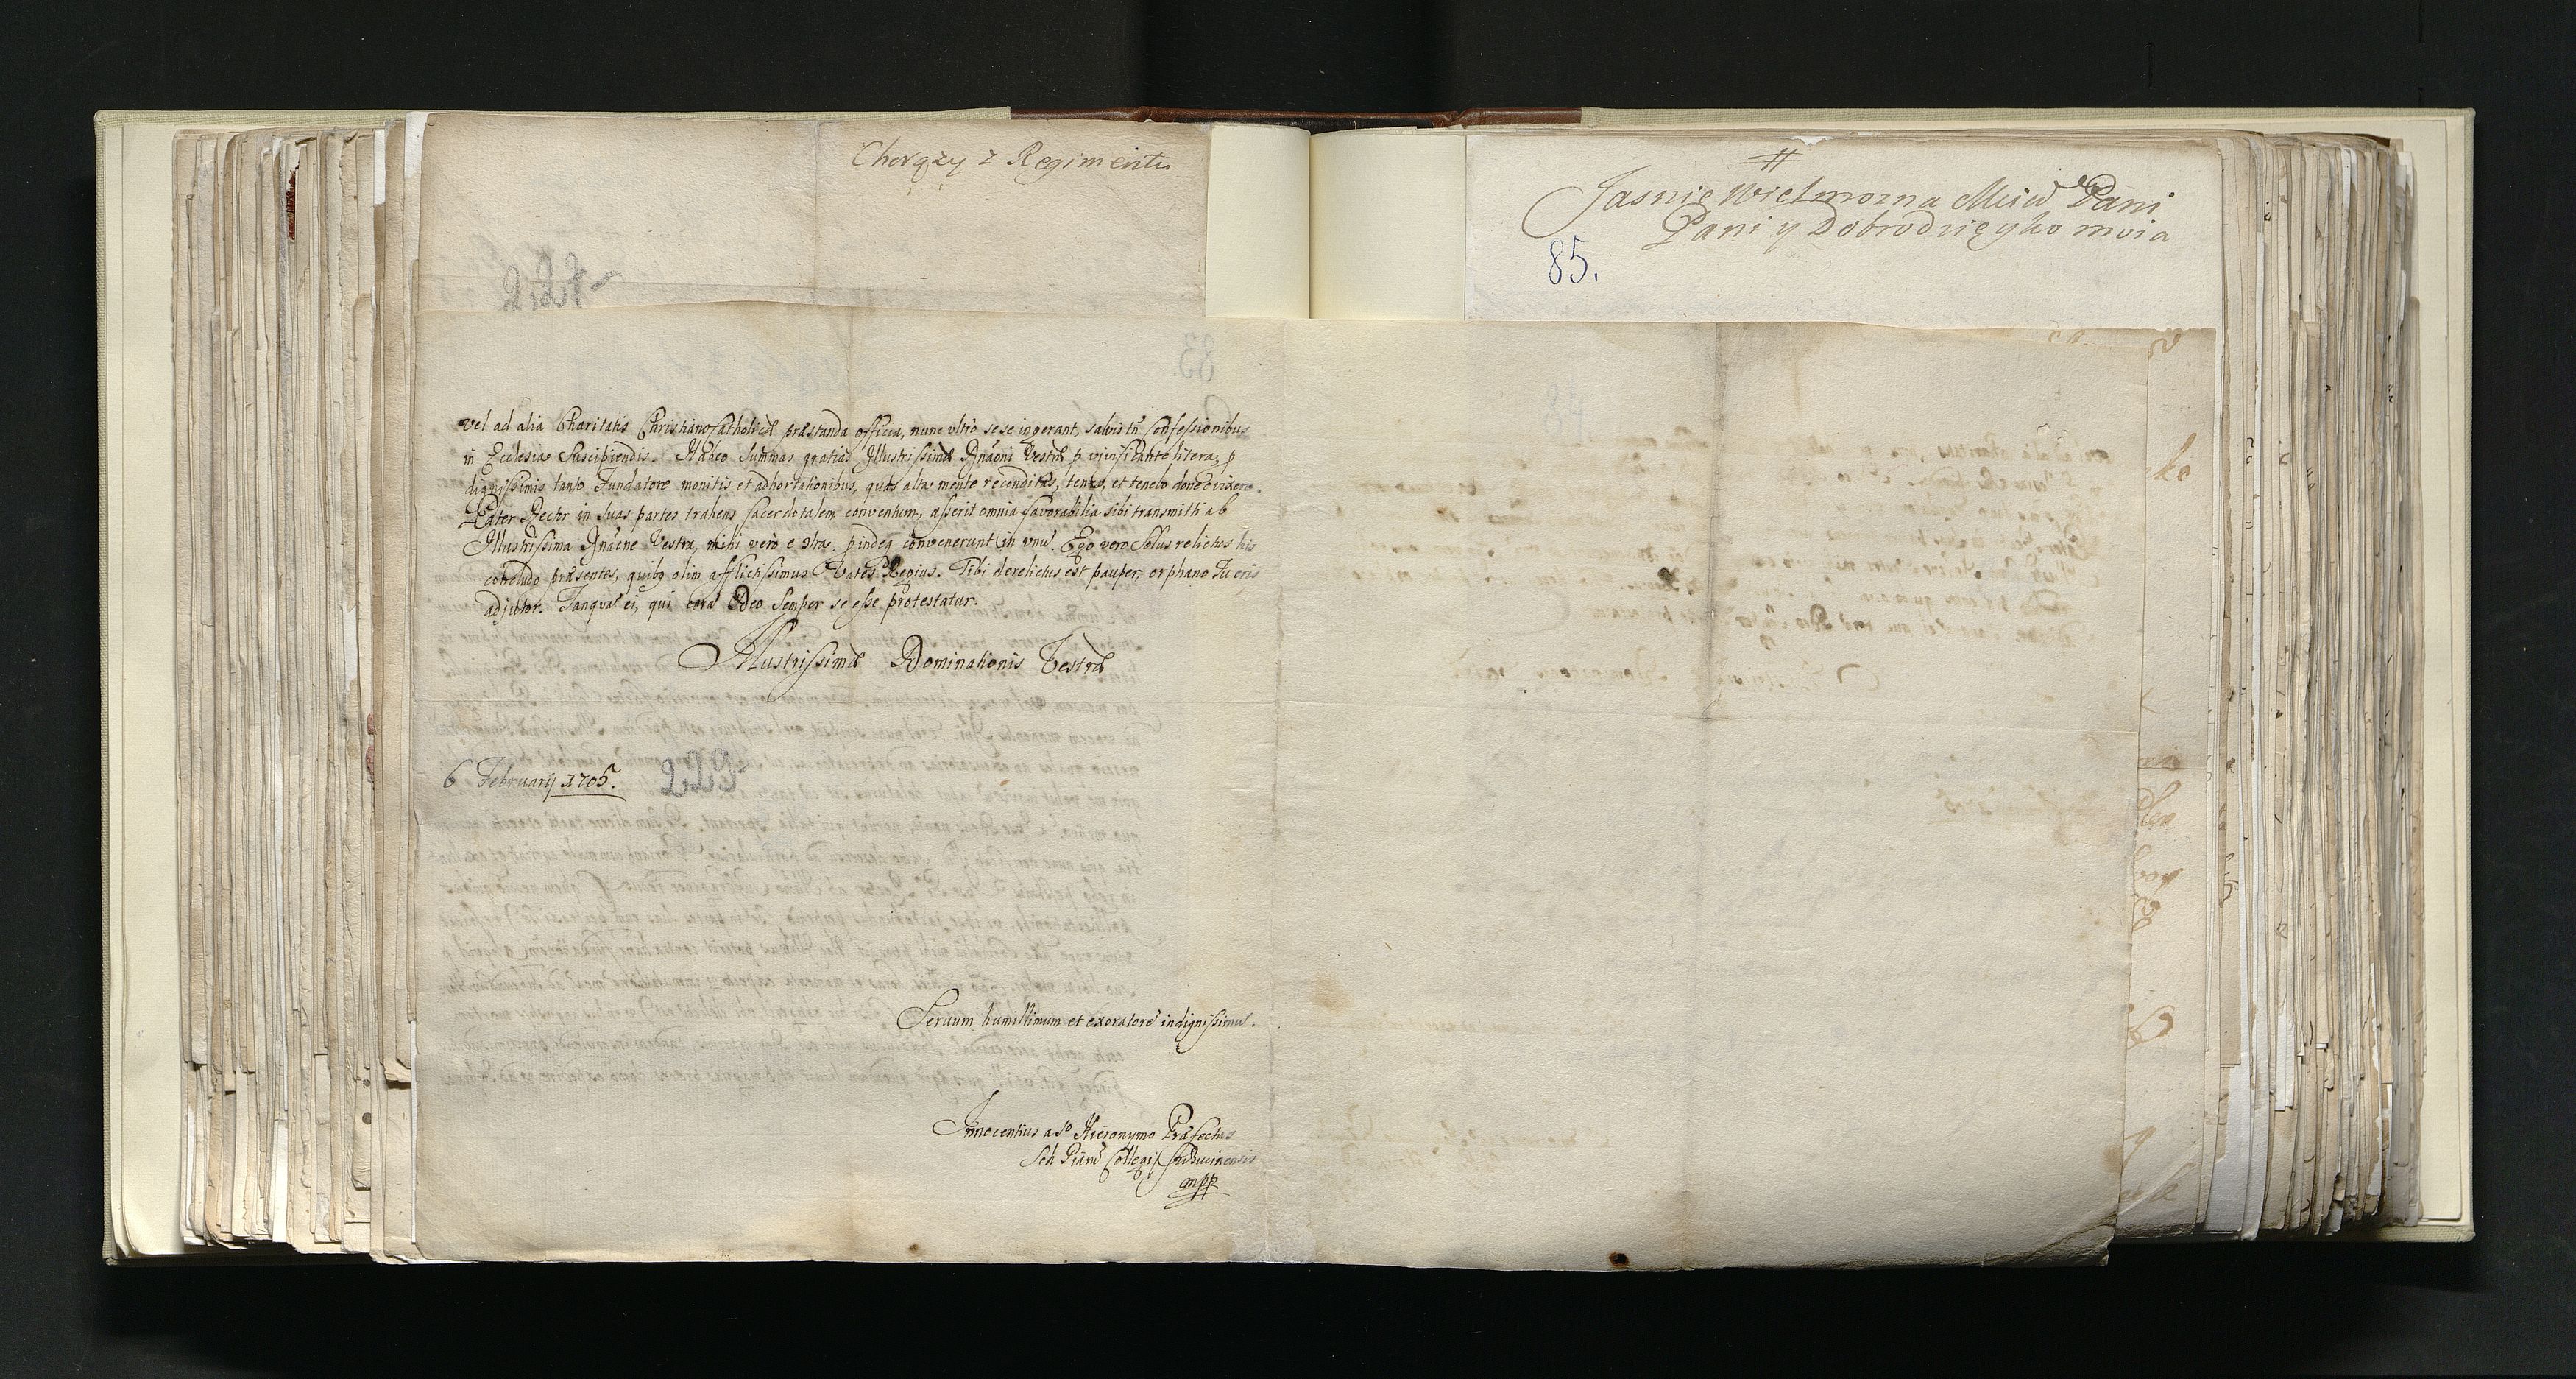 Chorązy z Regimentu
227
vel ad alia Charitatis Christiano Catholicæ præstanda officia, nunc ultro sese ingerant, salvis tñ Confessionibus
in Ecclesia Suscipiendis. Habeo Summas gratias Illustrissimæ Dnãoni Vestræ p vivificante litera, p
dignissimis tanto Fundatore monitis et adhortationibus, quas alta mente reconditas, teneo, et tenebo donec vixero.
Pater Rector in suas partes trahens sacerdotalem conventum, asserit omnia favorabilia sibi transmitti ab
Illustrissima Dnãone Vestra, mihi vero e ɔtra. pindeq convenerunt in unũ. Ego vero Solus relictus his
concludo præsentes, quibq olim afflictissimus Vates Regius. Tibi derelictus est pauper, orphano Tu eris
adjutor. Tanquã ei, qui corã Deo Semper se esse protestatur.
Illustrissimæ Dominationis Vestræ
6 Februarij 1705.
229
Servum humillimum et exoratorẽ indignissimũ.
Innocentius a So Hieronymo Præfectus
Sch Piarũ Collegij
mpp
#
Jasnie Wielmozna Mciwa Pani
Pani y Dobrodzieyko moia
85.